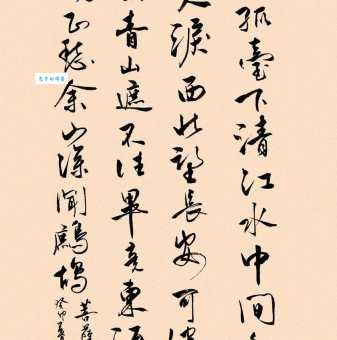 孤臺下清江水中間
人淚西北望長安可
青山遮不住畢竟東流
正愁余山深聞鷓鴣
菩薩
癸卯